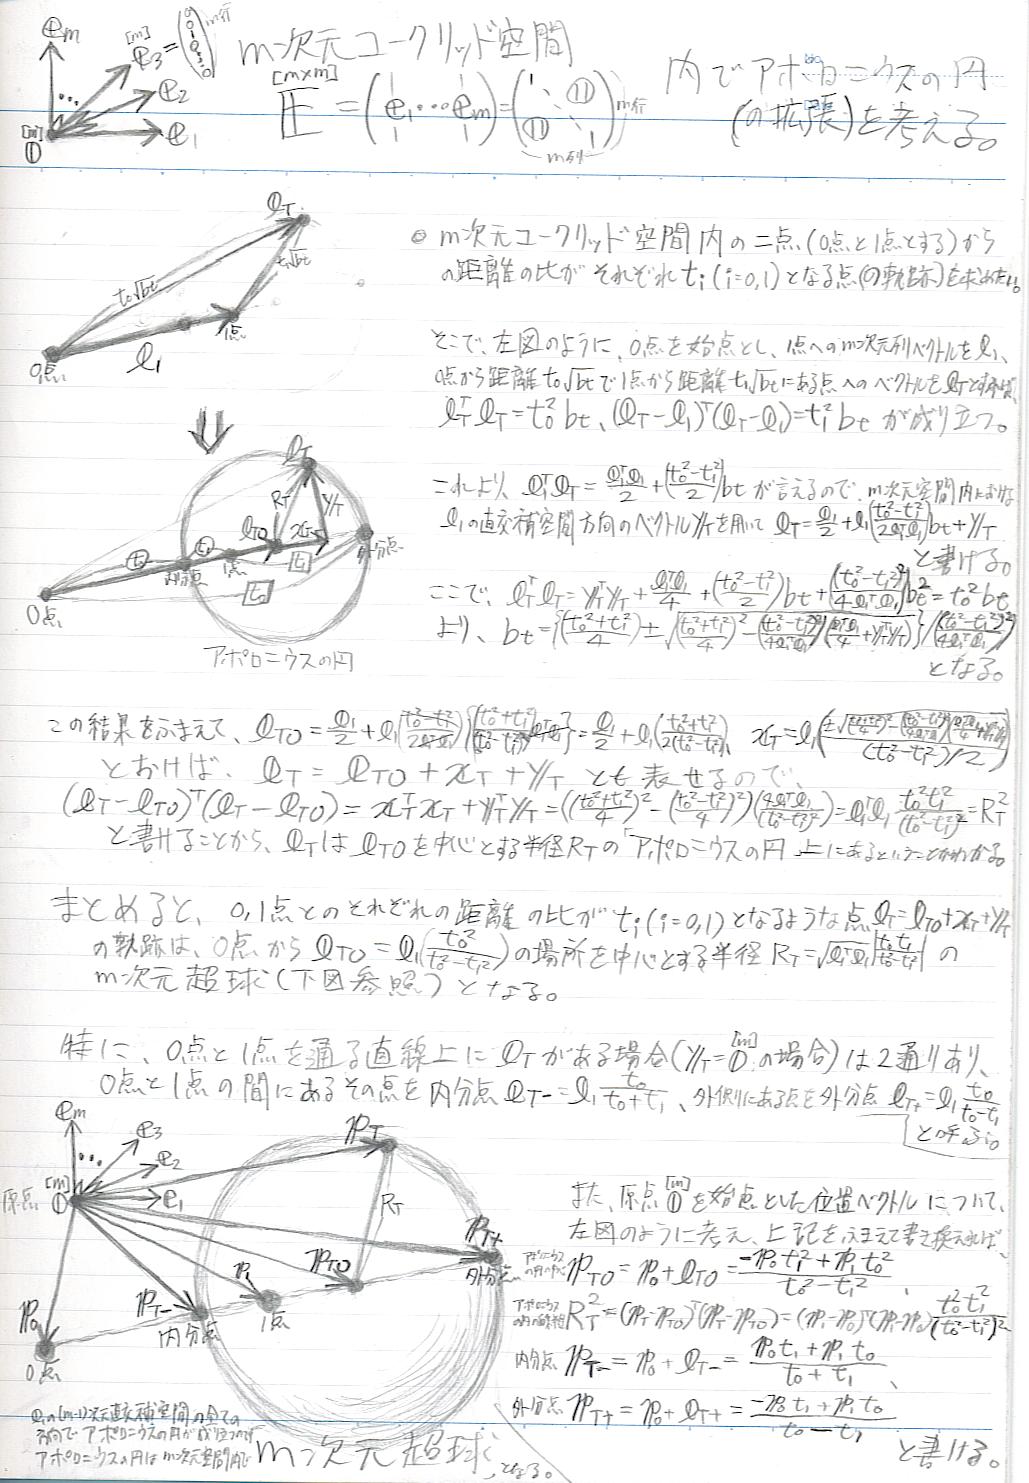 m次元ユークリッド空間
内でアポロニウスの円
(の拡張)を考える。
[m×m]
E = (e₁ … e_m) =
m行
m列
e_m
[m]
e₃ =
m行
e₂
e₁
◎ m次元ユークリッド空間内の二点(0点と1点とする)から
の距離の比がそれぞれ tᵢ (i=0,1) となる点(の軌跡)を求めたい。
そこで、左図のように、0点を始点とし、1点へのm次元列ベクトルを l₁、
0点から距離 t₀√bt で1点から距離 t₁√bt にある点へのベクトルを l_T とすれば、
l_Tᵀ l_T = t₀² bt、(l_T − l₁)ᵀ(l_T − l₁) = t₁² bt が成り立つ。
l_T
t₀√bt
t₁√bt
1点
l₁
0点
これより、l₁ᵀ l_T = l₁ᵀl₁/2 + ((t₀²−t₁²)/2) bt が言えるので、m次元空間内における
l₁の直交補空間方向のベクトル y_T を用いて l_T = l₁/2 + l₁((t₀²−t₁²)/(2l₁ᵀl₁)) bt + y_T
と書ける。
ここで、l_Tᵀ l_T = y_Tᵀ y_T + l₁ᵀl₁/4 + ((t₀²−t₁²)/2) bt + ((t₀²−t₁²)²/(4l₁ᵀl₁)) bt² = t₀² bt
より、bt = {((t₀²+t₁²)/4) ± √(((t₀²+t₁²)/4)² − ((t₀²−t₁²)²/(4l₁ᵀl₁))(l₁ᵀl₁/4 + y_Tᵀy_T))} / ((t₀²−t₁²)²/(4l₁ᵀl₁))
となる。
l_T
R_T
y_T
l_T0
x_T
外分点
t₀
t₁
内分点
1点
t₁
t₀
0点
アポロニウスの円
この結果をふまえて、l_T0 = l₁/2 + l₁((t₀²+t₁²)/(2(t₀²−t₁²)))、x_T = l₁
とおけば、l_T = l_T0 + x_T + y_T とも表せるので、
(l_T − l_T0)ᵀ(l_T − l_T0) = x_Tᵀ x_T + y_Tᵀ y_T = (((t₀²+t₁²)/4)² − ((t₀²−t₁²)/4)²)(4l₁ᵀl₁/(t₀²−t₁²)²) = l₁ᵀl₁ t₀²t₁²/(t₀²−t₁²)² = R_T²
と書けることから、l_T は l_T0 を中心とする半径 R_T の「アポロニウスの円」上にあるということがわかる。
まとめると、0,1点とのそれぞれの距離の比が tᵢ (i=0,1) となるような点 l_T = l_T0 + x_T + y_T
の軌跡は、0点から l_T0 = l₁(t₀²/(t₀²−t₁²)) の場所を中心とする半径 R_T = √(l₁ᵀl₁) |t₀t₁/(t₀²−t₁²)| の
m次元超球(下図参照)となる。
特に、0点と1点を通る直線上に l_T がある場合(y_T = 0 の場合)は2通りあり、
0点と1点の間にあるその点を内分点 l_T− = l₁ t₀/(t₀+t₁)、外側にある点を外分点 l_T+ = l₁ t₀/(t₀−t₁)
と呼ぶ。
e_m
e₃
e₂
e₁
[m]
原点
p_T
R_T
p_T+
外分点
p_T0
p₁
1点
p_T−
内分点
p₀
0点
また、原点 0 を始点とした位置ベクトルについて、
左図のように考え、上記をふまえて書き換えれば、
アポロニウスの円の中心 p_T0 = p₀ + l_T0 = (−p₀t₁² + p₁t₀²)/(t₀²−t₁²)、
アポロニウスの円の R_T² = (p_T−p_T0)ᵀ(p_T−p_T0) = (p₁−p₀)ᵀ(p₁−p₀) t₀²t₁²/(t₀²−t₁²)²
内分点 p_T− = p₀ + l_T− = (p₀t₁ + p₁t₀)/(t₀+t₁)、
外分点 p_T+ = p₀ + l_T+ = (−p₀t₁ + p₁t₀)/(t₀−t₁)
と書ける。
l₁の(m-1)次元直交補空間の全ての
方向でアポロニウスの円が成り立つので
アポロニウスの円はm次元空間内で
m次元超球
となる。